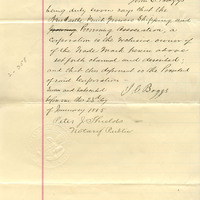 being duly sworn says that the
Fruit Growers Shipping and
Association, a
corporation is the exclusive owner of
of the Trade Mark herein above
set forth claimed and described;
and that this deponent is the President
of said Corporation.
Sworn and subscribed
before me this 23rd day J. C. Boggs
of January 1886
Peter J Shields
Notary Public